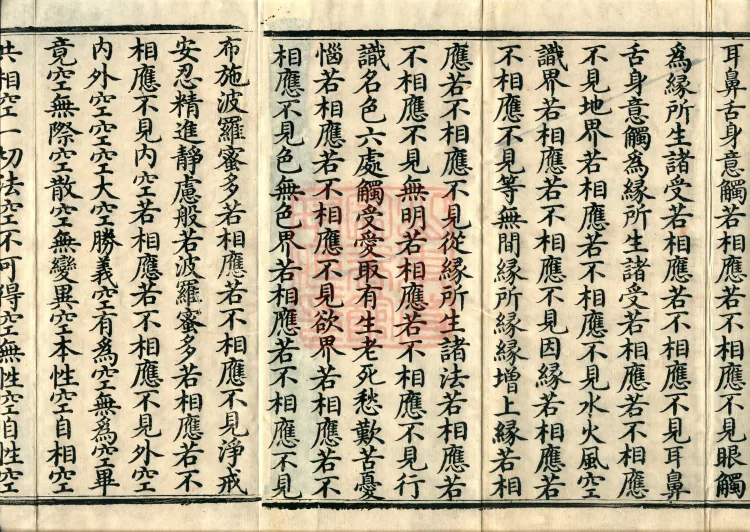 耳鼻舌身意觸若相應若不相應不見眼觸
為緣所生諸受若相應若不相應不見耳鼻
舌身意觸為緣所生諸受若相應若不相應
不見地界若相應若不相應不見水火風空
識界若相應若不相應不見因緣若相應若
不相應不見等無間緣所緣緣增上緣若相
應若不相應不見從緣所生諸法若相應若
不相應不見無明若相應若不相應不見行
識名色六處觸受愛取有生老死愁歎苦憂
惱若相應若不相應不見欲界若相應若不
相應不見色無色界若相應若不相應不見
布施波羅蜜多若相應若不相應不見淨戒
安忍精進靜慮般若波羅蜜多若相應若不
相應不見內空若相應若不相應不見外空
內外空空空大空勝義空有為空無為空畢
竟空無際空散空無變異空本性空自相空
共相空一切法空不可得空無性空自性空